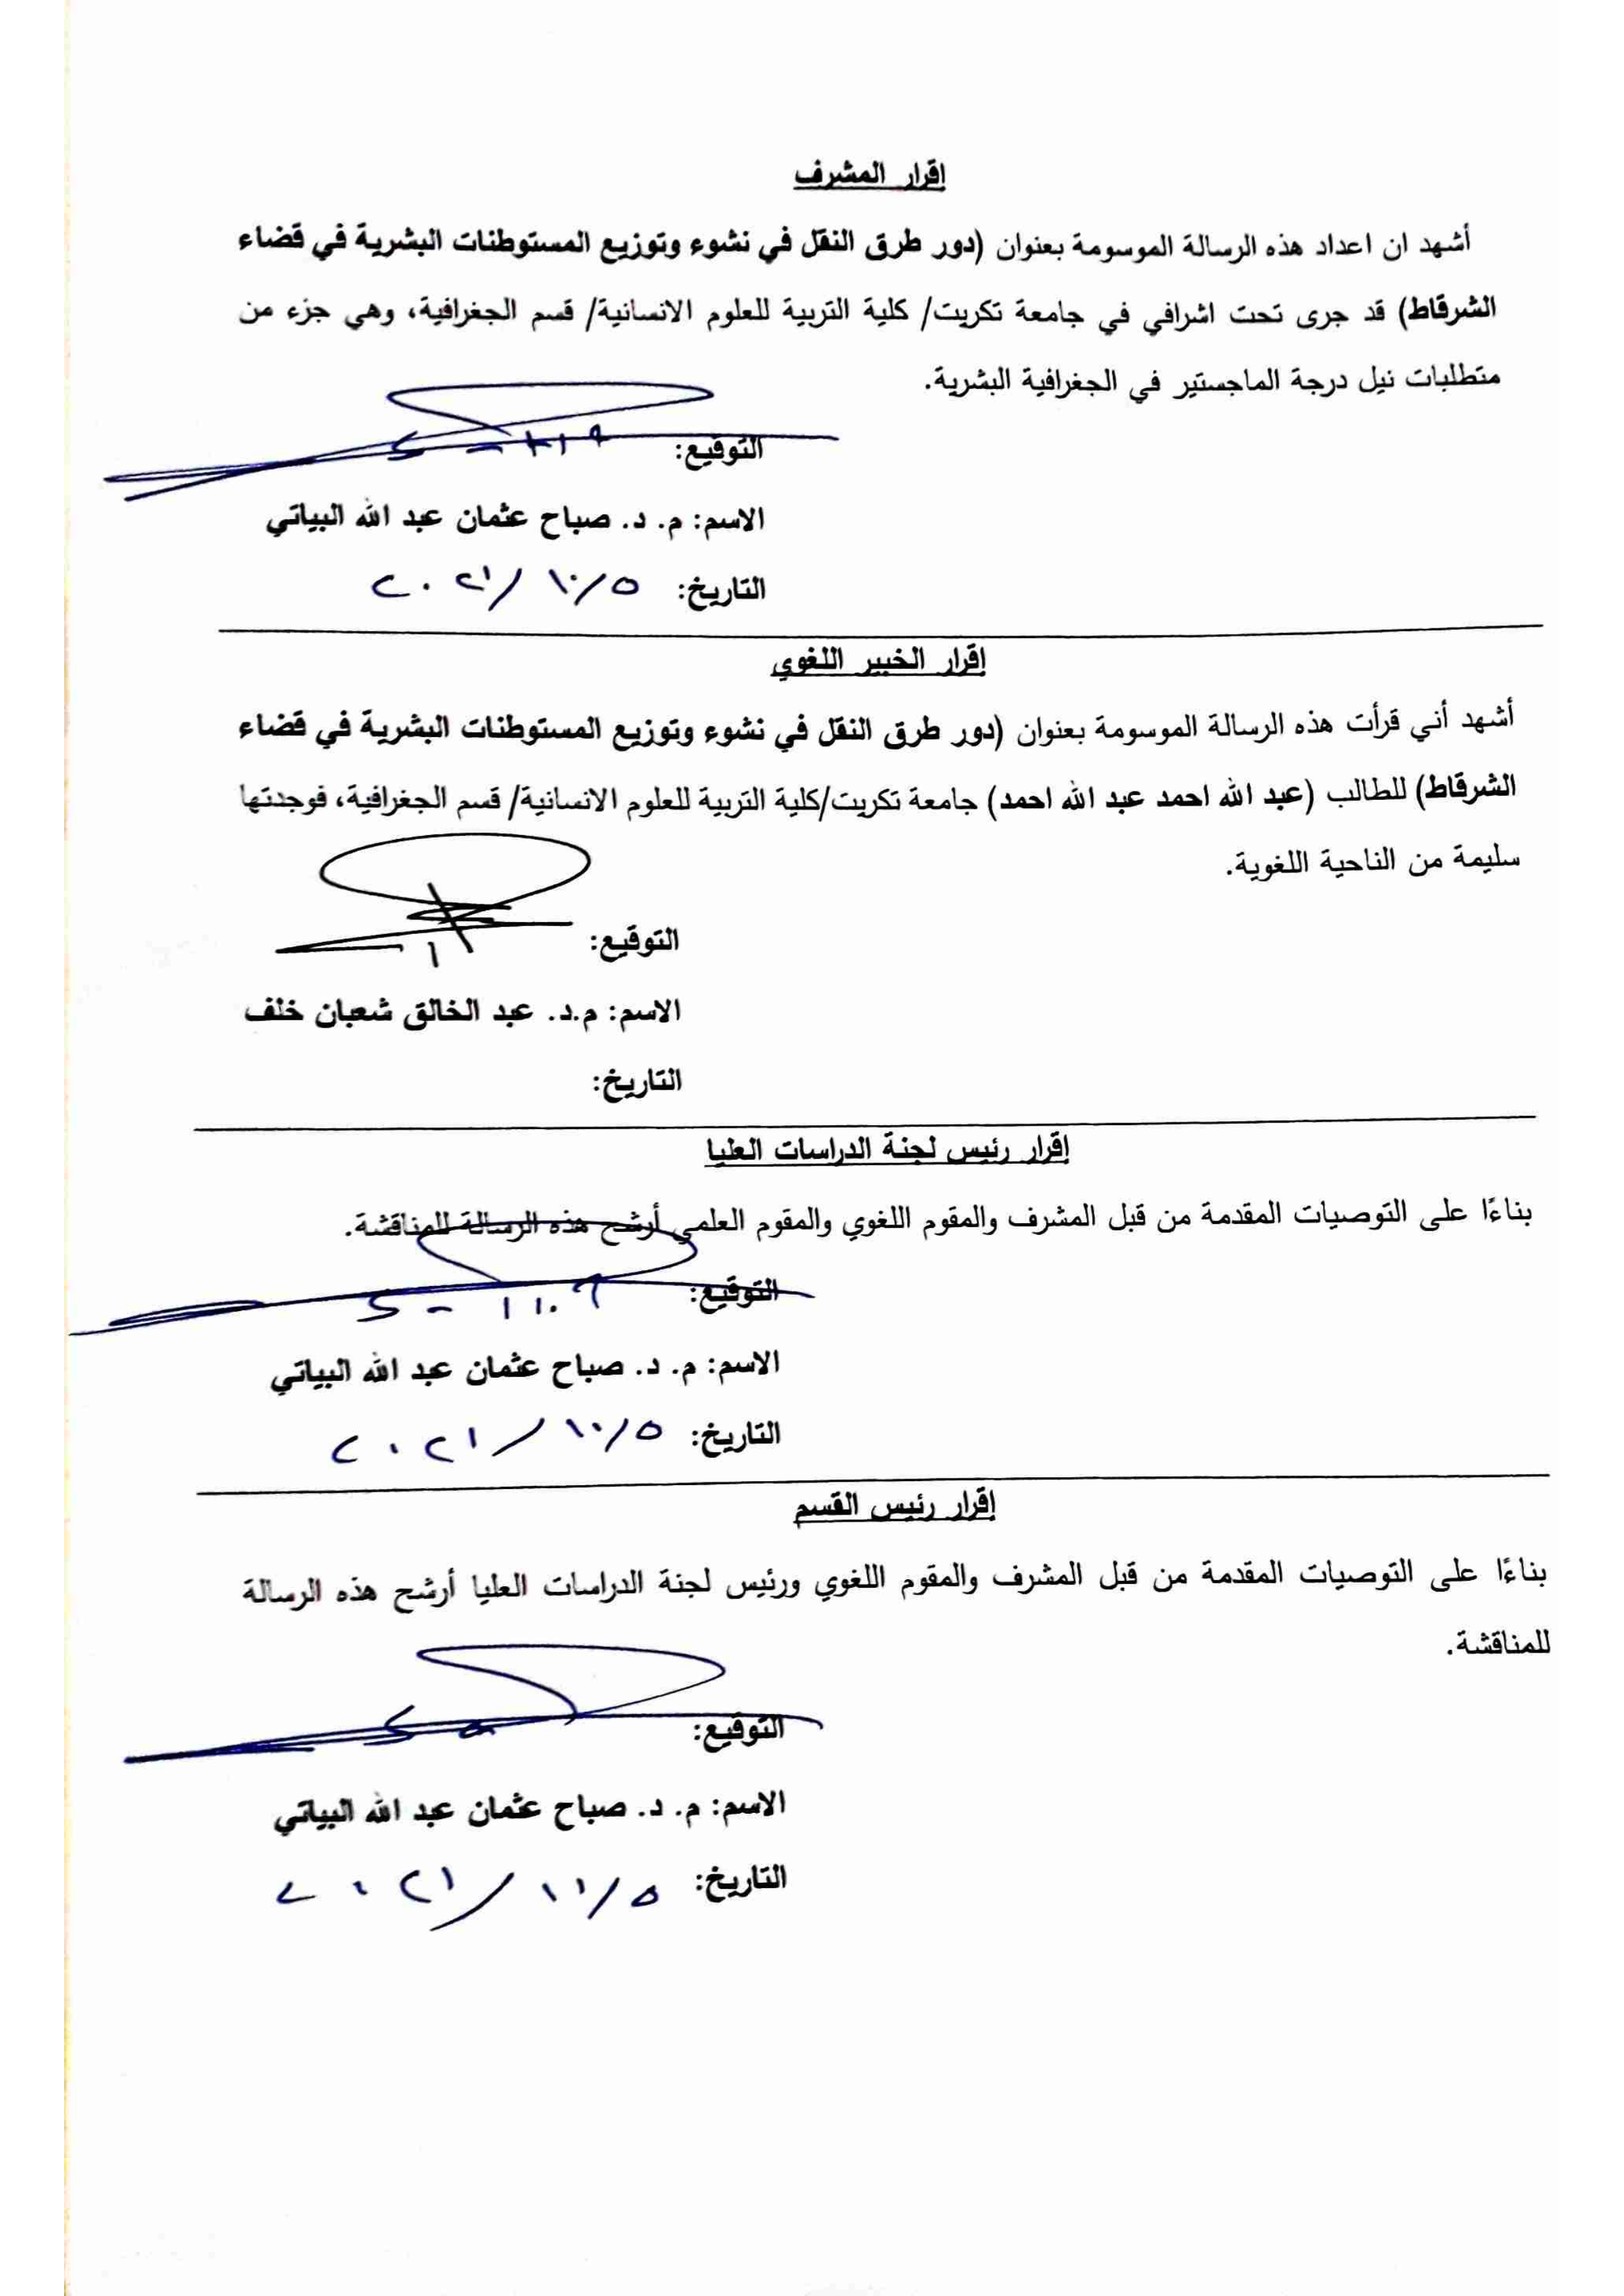 إقرار المشرف
أشهد ان اعداد هذه الرسالة الموسومة بعنوان (دور طرق النقل في نشوء وتوزيع المستوطنات البشرية في قضاء
الشرقاط) قد جرى تحت اشرافي في جامعة تكريت/ كلية التربية للعلوم الانسانية/ قسم الجغرافية، وهي جزء من
متطلبات نيل درجة الماجستير في الجغرافية البشرية.
التوقيع:
الاسم: م. د. صباح عثمان عبد الله البياتي
التاريخ: ٥/١٠/٢٠٢١
إقرار الخبير اللغوي
أشهد أني قرأت هذه الرسالة الموسومة بعنوان (دور طرق النقل في نشوء وتوزيع المستوطنات البشرية في قضاء
الشرقاط) للطالب (عبد الله احمد عبد الله احمد) جامعة تكريت/كلية التربية للعلوم الانسانية/ قسم الجغرافية، فوجدتها
سليمة من الناحية اللغوية.
التوقيع:
الاسم: م.د. عبد الخالق شعبان خلف
التاريخ:
إقرار رئيس لجنة الدراسات العليا
بناءًا على التوصيات المقدمة من قبل المشرف والمقوم اللغوي والمقوم العلمي أرشح هذه الرسالة للمناقشة.
التوقيع:
الاسم: م. د. صباح عثمان عبد الله البياتي
التاريخ: ٥/١٠/٢٠٢١
إقرار رئيس القسم
بناءًا على التوصيات المقدمة من قبل المشرف والمقوم اللغوي ورئيس لجنة الدراسات العليا أرشح هذه الرسالة
للمناقشة.
التوقيع:
الاسم: م. د. صباح عثمان عبد الله البياتي
التاريخ: ٥/١٠/٢٠٢١